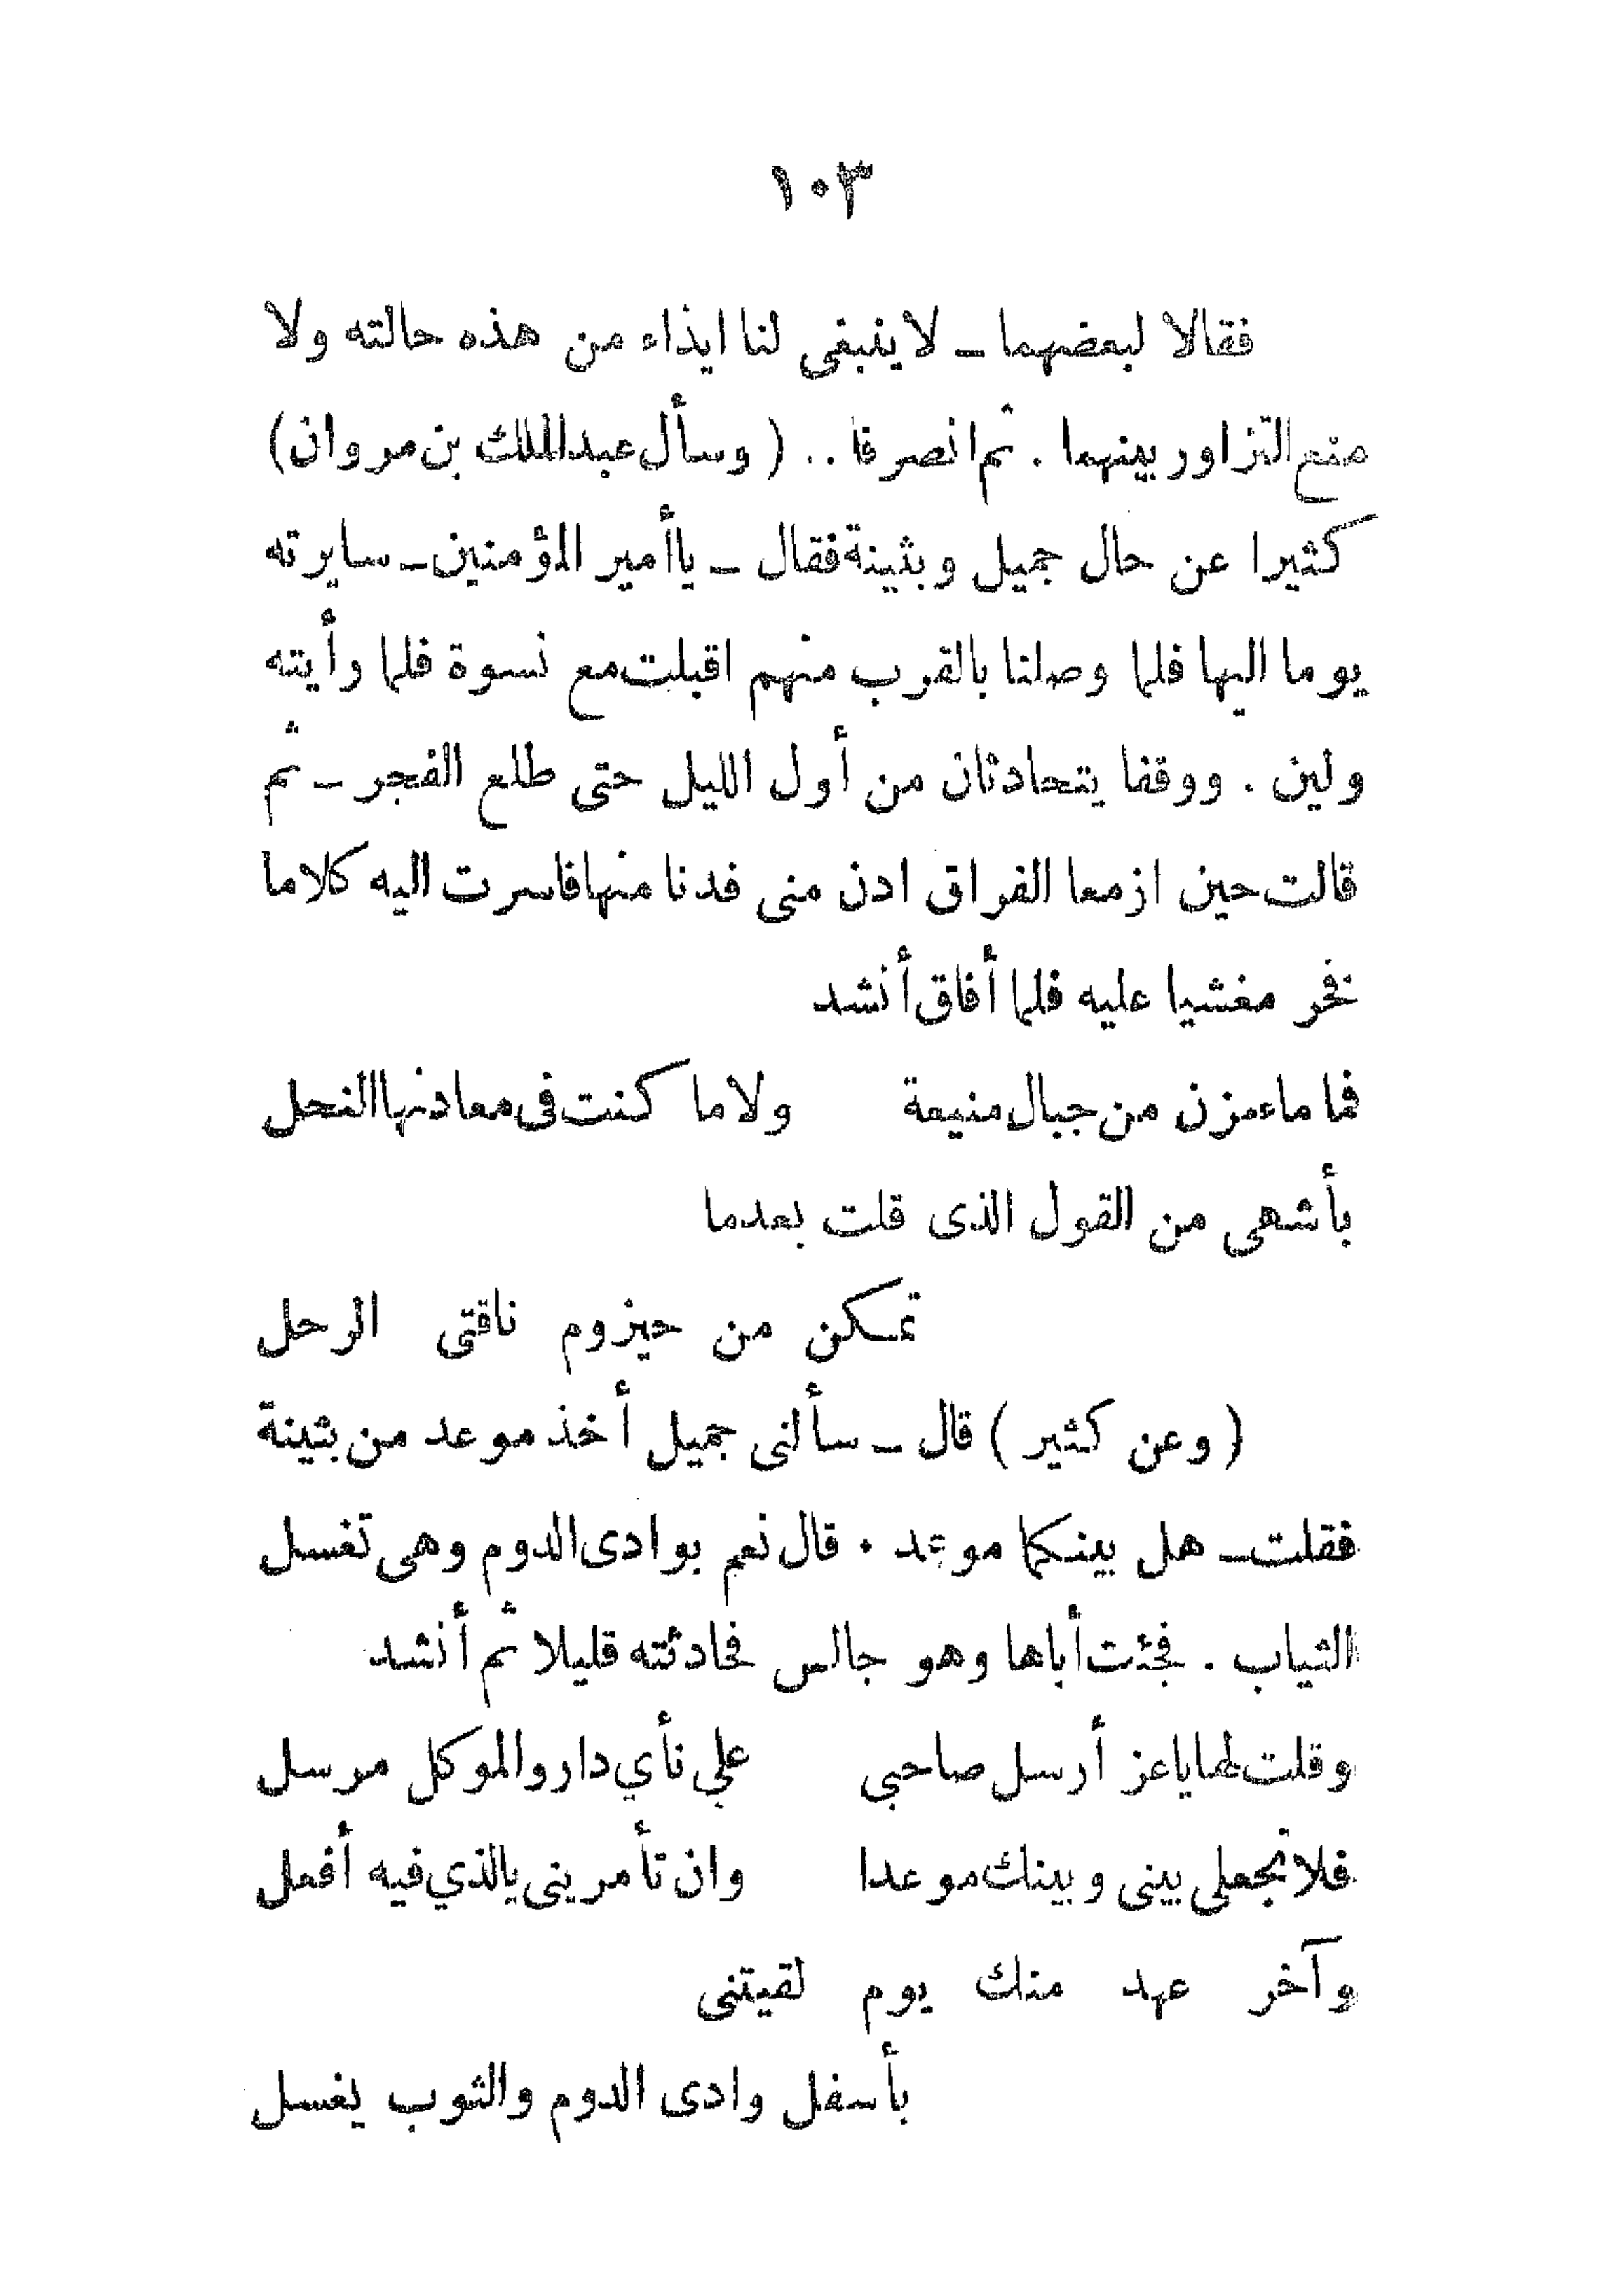 ١٠٣
فقالا لبعضهما ـ لا ينبغى لنا ايذاء من هذه حالته ولا
منع التزاور بينهما . ثم انصرفا .. ( وسأل عبد الملك بن مروان )
كثيرا عن حال جميل وبثينة فقال ـ يا أمير المؤمنين ـ سايرته
يوما اليها فلما وصلنا بالقرب منهم اقبلت مع نسوة فلما رأيته
ولين . ووقفا يتحادثان من أول الليل حتى طلع الفجر ـ ثم
قالت حين ازمعا الفراق ادن منى فدنا منها فاسرت اليه كلاما
فخر مغشيا عليه فلما أفاق أنشد
فما ماء مزن من جبال منيعة ولا ما كنت فى معادنها النحل
بأشهى من القول الذى قلت بعدما
تمكن من حيزوم ناقتى الرحل
( وعن كثير ) قال ـ سألنى جميل أخذ موعد من بثينة
فقلت ـ هل بينكما موعد . قال نعم بوادى الدوم وهى تغسل
الثياب . فجئت أباها وهو جالس فحادثته قليلا ثم أنشد
وقلت لها ياعز أرسل صاحبي علي نأي دار والموكل مرسل
فلا تجعلي بينى وبينك موعدا وان تأمرينى بالذي فيه أفعل
وآخر عهد منك يوم لقيتنى
بأسفل وادى الدوم والثوب يغسل